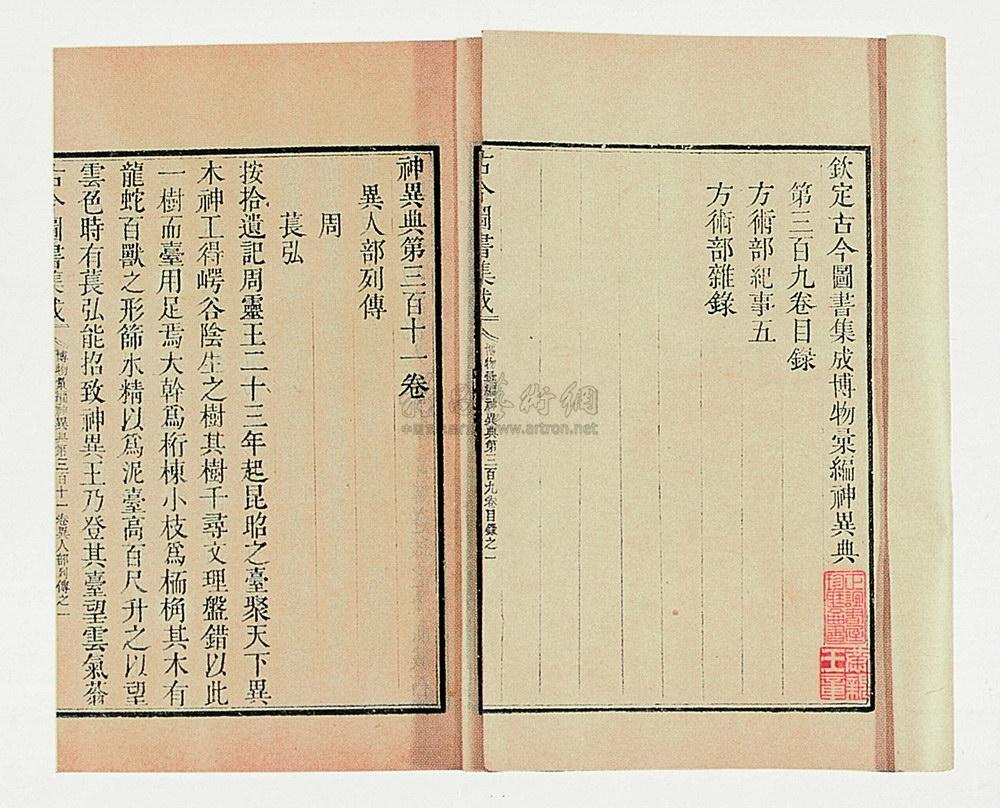 欽定古今圖書集成博物彙編神異典
第三百九卷目錄
方術部紀事五
方術部雜錄
古今圖書集成
博物彙編神異典第三百九卷目錄之一
神異典第三百十一卷
異人部列傳
周
萇弘
按拾遺記周靈王二十三年起昆昭之臺聚天下異
木神工得崿谷陰生之樹其樹千尋文理盤錯以此
一樹而臺用足焉大幹爲桁棟小枝爲栭桷其木有
龍蛇百獸之形篩水精以爲泥臺高百尺升之以望
雲色時有萇弘能招致神異王乃登其臺望雲氣蓊
古今圖書集成
博物彙編神異典第三百十一卷異人部列傳之一
術網
www.artron.net